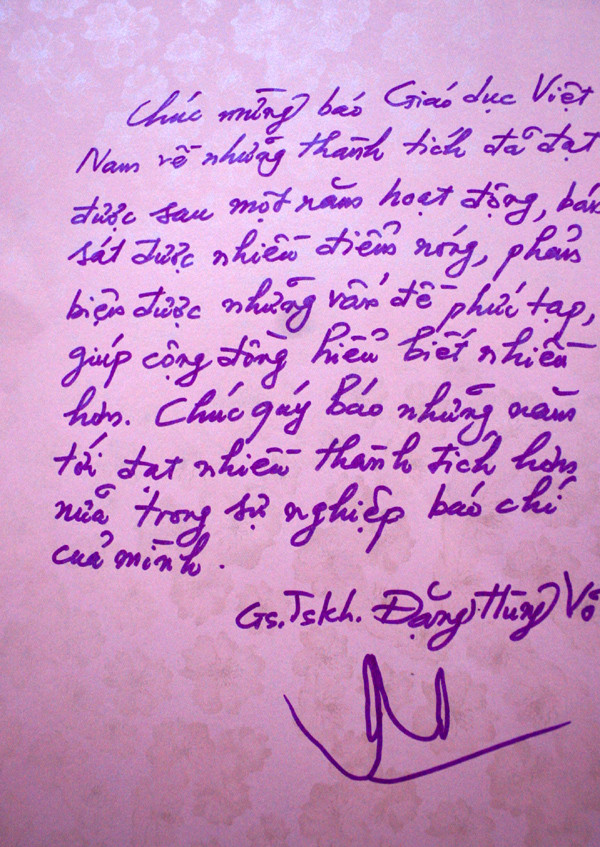 Chúc mừng báo Giáo dục Việt
Nam về những thành tích đã đạt
được sau một năm hoạt động, bám
sát được nhiều điểm nóng, phản
biện được những vấn đề phức tạp,
giúp cộng đồng hiểu biết nhiều
hơn. Chúc quý báo những năm
tới đạt nhiều thành tích hơn
nữa trong sự nghiệp báo chí
của mình.
Gs.Tskh. Đặng Hùng Võ